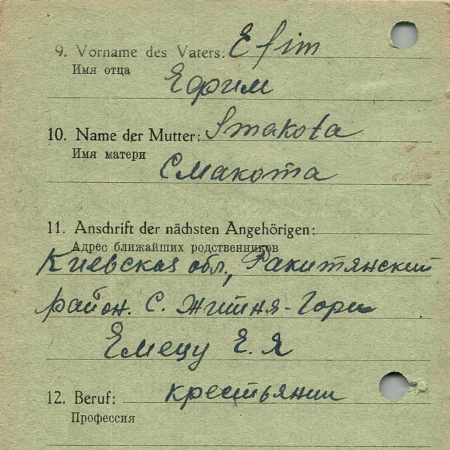 9. Vorname des Vaters: Efim
Имя отца
Ефим
10. Name der Mutter: Smakota
Имя матери
Смакота
11. Anschrift der nächsten Angehörigen:
Адрес ближайших родственников
Киевская обл, Ракитянский
район. С. Житня-Гори
Емецу Е. Я
12. Beruf: крестьянин
Профессия